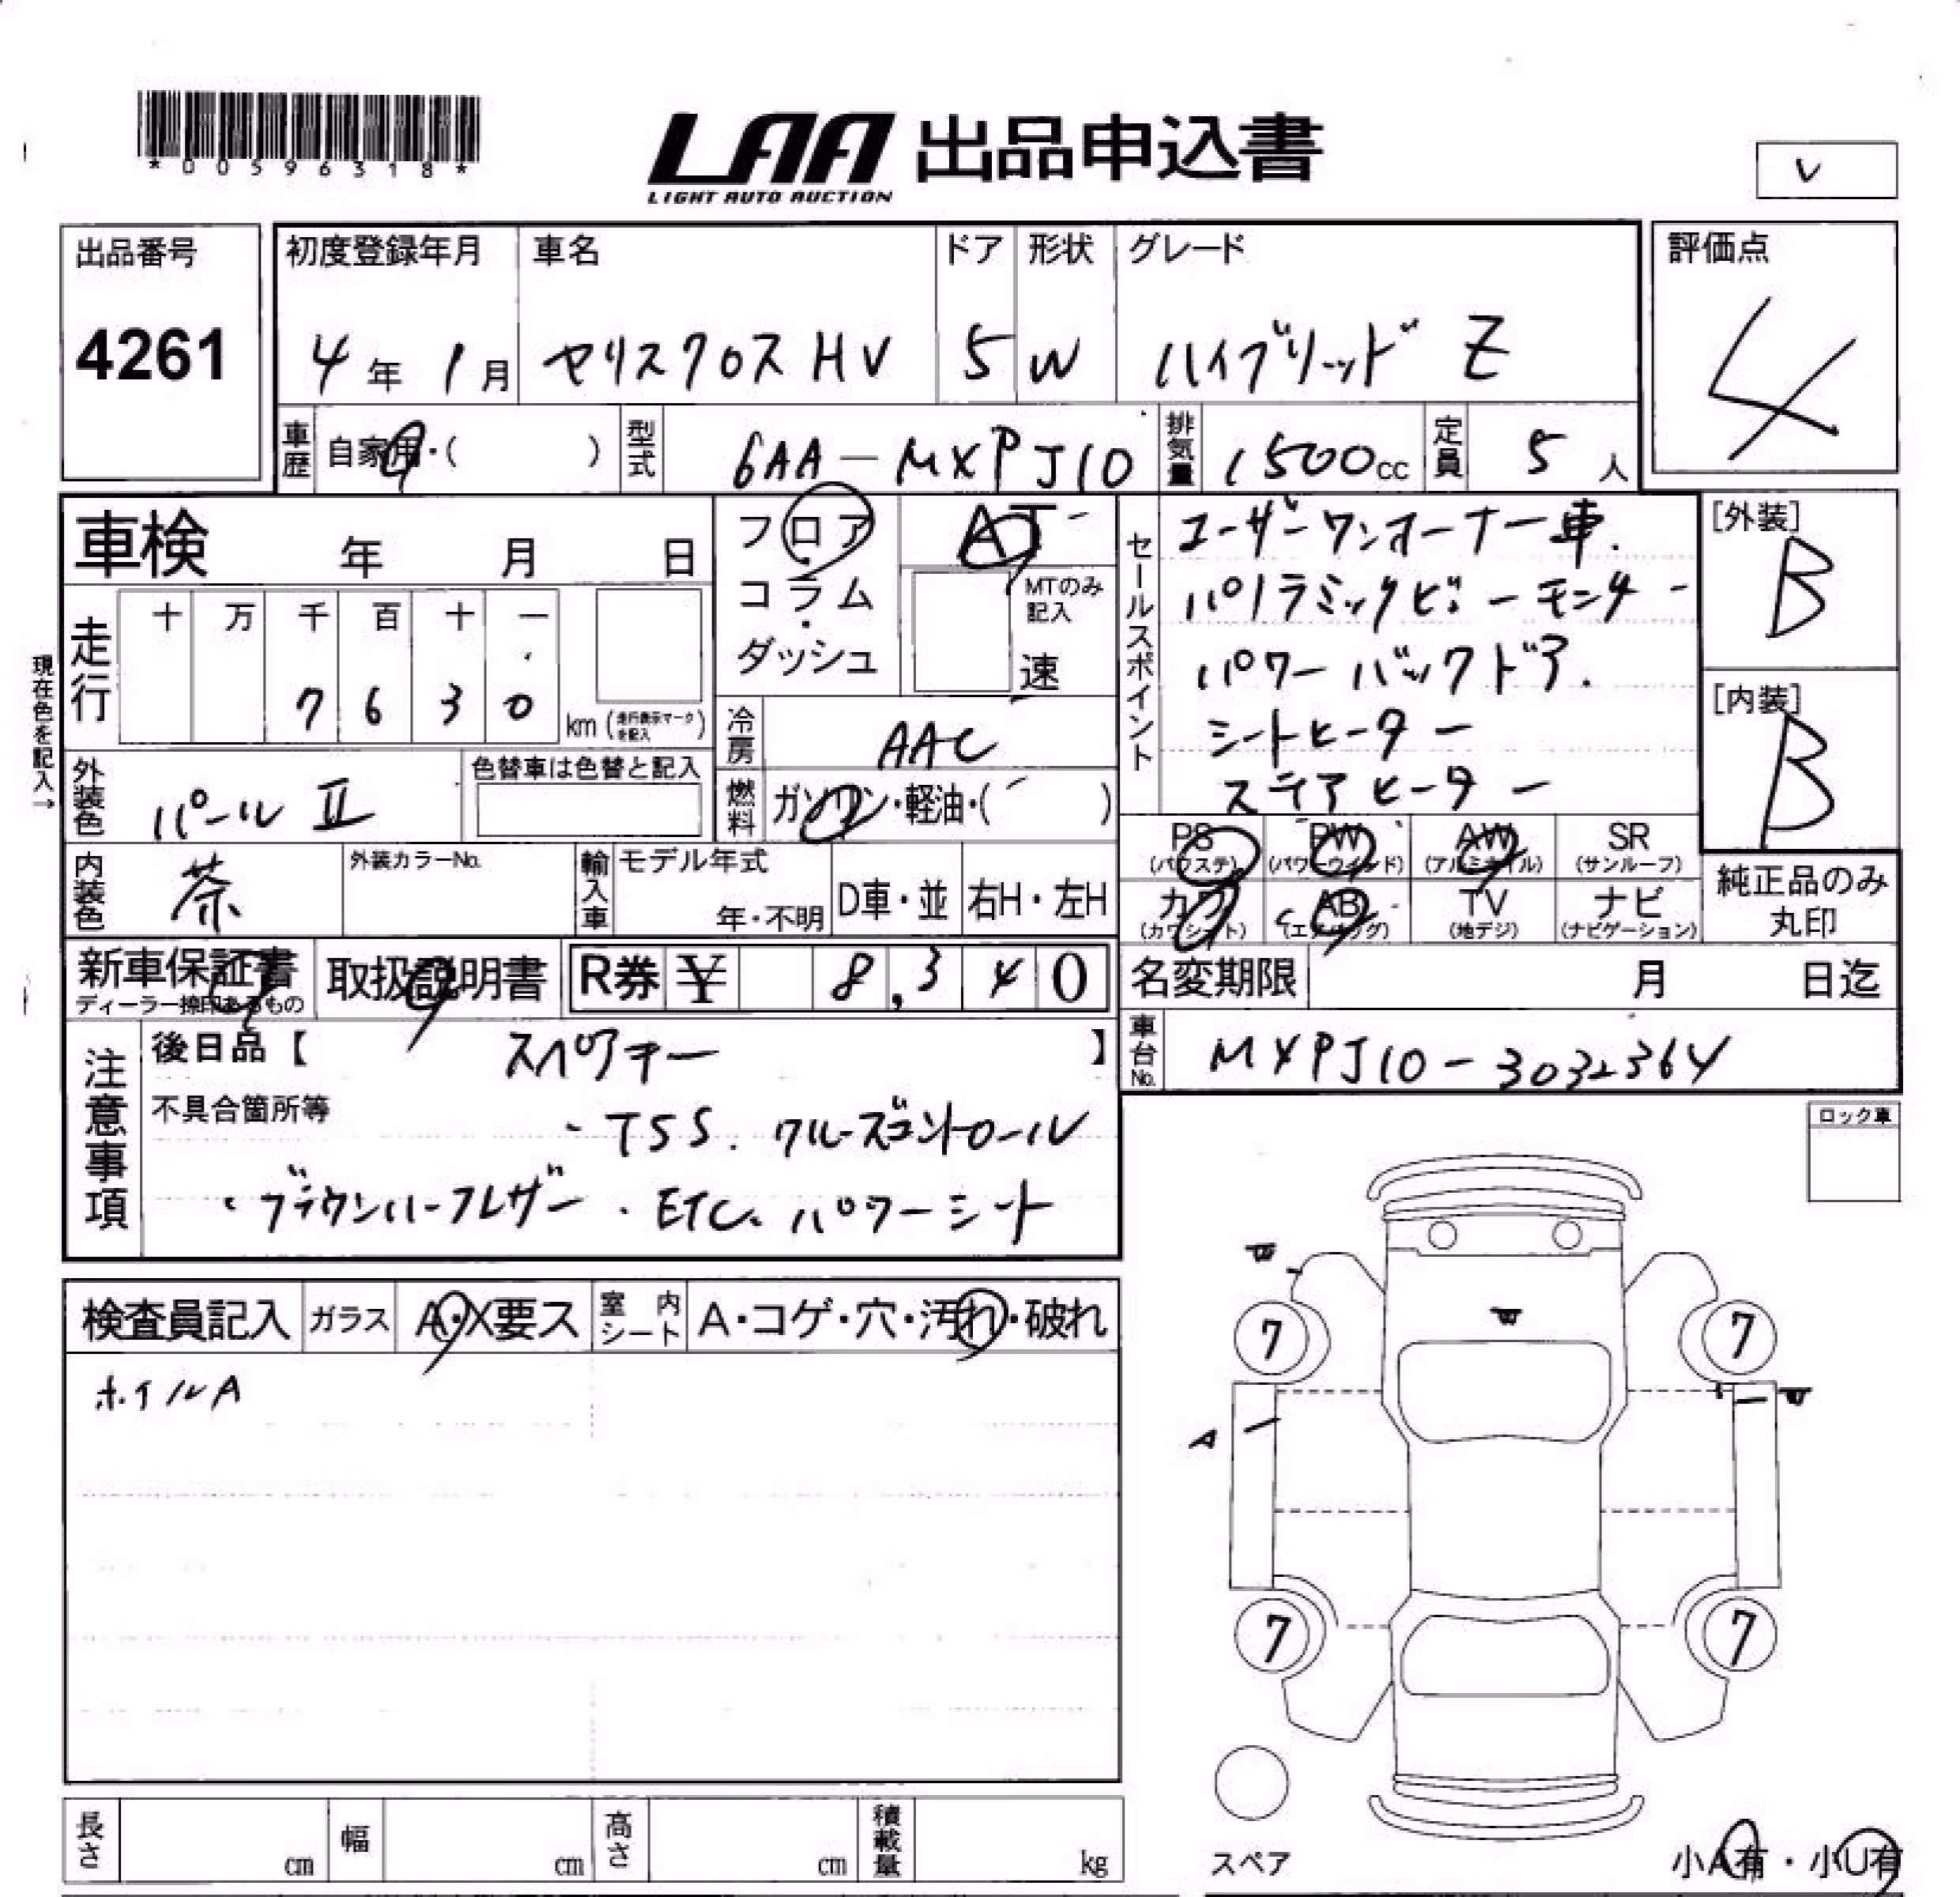 *00596318*
LAA 出品申込書
LIGHT AUTO AUCTION
出品番号
4261
初度登録年月
4年1月
車名
ヤリスクロスHV
ドア
5
形状
W
グレード
ハイブリッド Z
評価点
4
車歴 自家用・( )
型式 6AA-MXPJ10
排気量 1500cc
定員 5人
車検 年 月 日
フロア・コラム・ダッシュ
AT
MTのみ記入
速
セールスポイント
ユーザーワンオーナー車.
パノラミックビューモニター
パワーバックドア.
シートヒーター
ステアヒーター
[外装]
B
[内装]
B
現在色を記入→
走行 十 万 千 百 十 一
7630 km (走行表示マークを記入)
冷房 AAC
外装色 パールⅡ
色替車は色替と記入
燃料 ガソリン・軽油・( )
PS (パワステ) PW (パワーウインド) AW (アルミホイル) SR (サンルーフ)
カワ (カワシート) AB (エアバッグ) TV (地デジ) ナビ (ナビゲーション)
純正品のみ丸印
内装色 茶
外装カラーNo.
輸入車 モデル年式
年・不明
D車・並 右H・左H
新車保証書
ディーラー捺印あるもの
取扱説明書
R券 ¥ 8,340
名変期限 月 日迄
車台No. MXPJ10-3032364
注意事項
後日品【 スペアキー 】
不具合箇所等
・TSS. クルーズコントロール
・ブラウンハーフレザー ・ETC. パワーシート
ロック車
検査員記入 ガラス A・X要ス 室内シート A・コゲ・穴・汚れ・破れ
ホイルA
A
7
7
7
7
長さ cm 幅 cm 高さ cm 積載量 kg
スペア
小A有・小U有